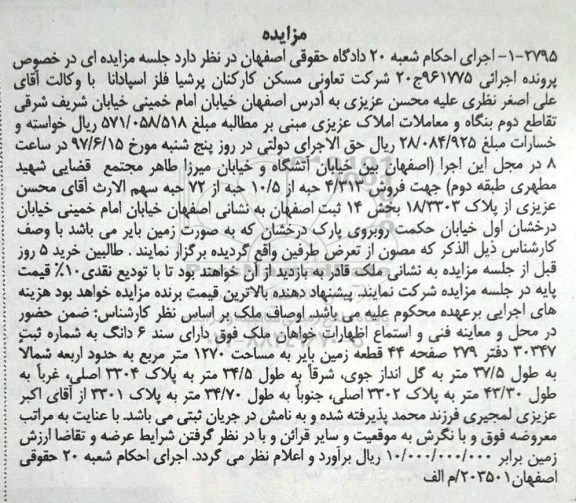 مزایده
۱-۲۷۹۵- اجرای احکام شعبه ۲۰ دادگاه حقوقی اصفهان در نظر دارد جلسه مزایده ای در خصوص
پرونده اجرائی ۹۶۱۷۷۵ج۲۰ شرکت تعاونی مسکن کارکنان پرشیا فلز اسپادانا با وکالت آقای
علی اصغر نظری علیه محسن عزیزی به آدرس اصفهان خیابان امام خمینی خیابان شریف شرقی
تقاطع دوم بنگاه و معاملات املاک عزیزی مبنی بر مطالبه مبلغ ۵۷۱/۰۵۸/۵۱۸ ریال خواسته و
خسارات مبلغ ۲۸/۰۸۴/۹۲۵ ریال حق الاجرای دولتی در روز پنج شنبه مورخ ۹۷/۶/۱۵ در ساعت
۸ در محل این اجرا (اصفهان بین خیابان آتشگاه و خیابان میرزا طاهر مجتمع قضایی شهید
مطهری طبقه دوم) جهت فروش ۴/۳۱۳ حبه از ۱۰/۵ حبه از ۷۲ حبه سهم الارث آقای محسن
عزیزی از پلاک ۱۸/۳۳۰۳ بخش ۱۴ ثبت اصفهان به نشانی اصفهان خیابان امام خمینی خیابان
درخشان اول خیابان حکمت روبروی پارک درخشان که به صورت زمین بایر می باشد با وصف
کارشناس ذیل الذکر که مصون از تعرض طرفین واقع گردیده برگزار نمایند . طالبین خرید ۵ روز
قبل از جلسه مزایده به نشانی ملک قادر به بازدید از آن خواهند بود تا با تودیع نقدی ۱۰٪ قیمت
پایه در جلسه مزایده شرکت نمایند. پیشنهاد دهنده بالاترین قیمت برنده مزایده خواهد بود هزینه
های اجرایی برعهده محکوم علیه می باشد. اوصاف ملک بر اساس نظر کارشناس: ضمن حضور
در محل و معاینه فنی و استماع اظهارات خواهان ملک فوق دارای سند ۶ دانگ به شماره ثبت
۳۰۳۴۷ دفتر ۲۷۹ صفحه ۴۴ قطعه زمین بایر به مساحت ۱۲۷۰ متر مربع به حدود اربعه شمالاً
به طول ۳۷/۵ متر به گل انداز جوی، شرقاً به طول ۳۴/۵ متر به پلاک ۳۳۰۴ اصلی، غرباً به
طول ۴۳/۳۰ متر به پلاک ۳۳۰۲ اصلی، جنوباً به طول ۳۴/۷۰ متر به پلاک ۳۳۰۱ از آقای اکبر
عزیزی لمجیری فرزند محمد پذیرفته شده و به نامش در جریان ثبتی می باشد. با عنایت به مراتب
معروضه فوق و با نگرش به موقعیت و سایر قرائن و با در نظر گرفتن شرایط عرضه و تقاضا ارزش
زمین برابر ۱۰/۰۰۰/۰۰۰/۰۰۰ ریال برآورد و اعلام نظر می گردد. اجرای احکام شعبه ۲۰ حقوقی
اصفهان۲۰۳۵۰۱/م الف